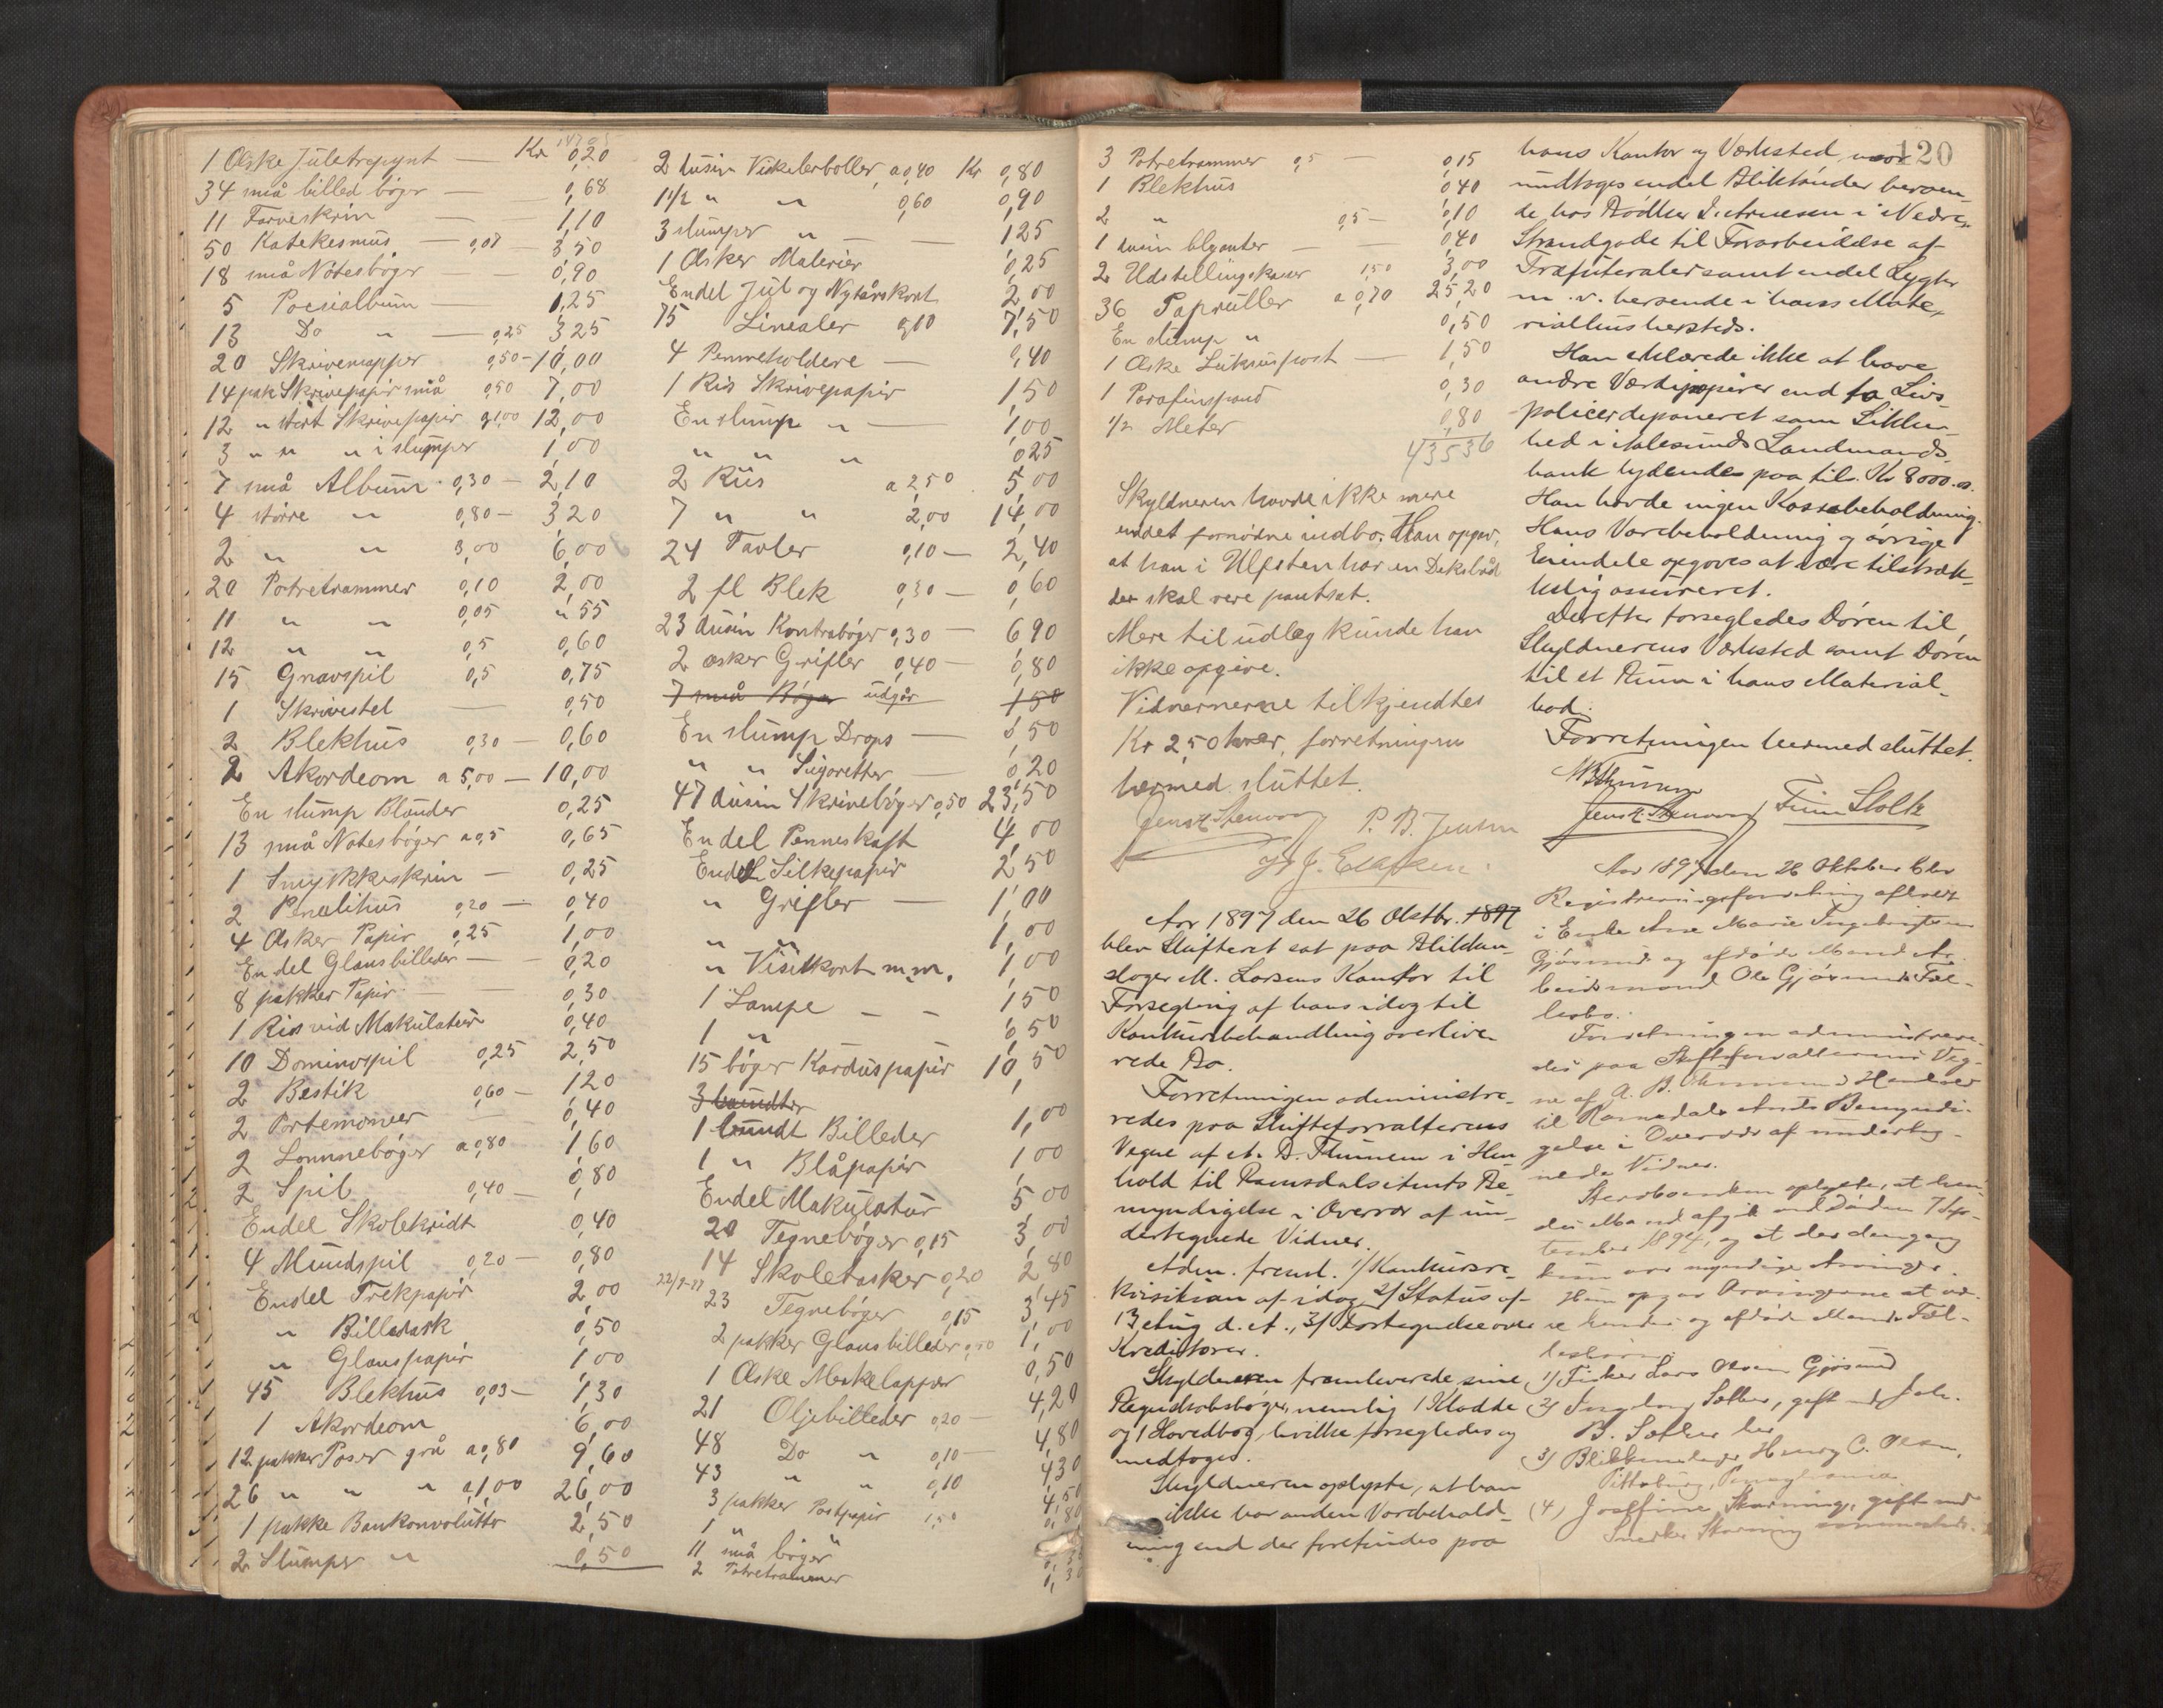 1 Æske Juletrepynt — Kr 0,20
34 små billed bøger — 0,68
11 Farveskrin — 1,10
50 Katekesmus — 0,07 — 3,50
18 små Notesbøger — 0,90
5 Poesialbum — 1,25
13 Do " — 0,25 3,25
20 Skrivemapper 0,50 — 10,00
14 pak Skrivepapir små 0,50 7,00
12 " stort Skrivepapir a 1,00 12,00
3 " " " i slumper 1,00
7 små Album 0,30 — 2,10
4 større " 0,80 — 3,20
2 " " 3,00 6,00
20 Potretrammer 0,10 2,00
11 " " 0,05 " 55
12 " " 0,5 0,60
15 Gnavspil 0,5 0,75
1 Skrivestel — 0,50
2 Blekhus 0,30 — 0,60
2 Akordeom a 5,00 — 10,00
En slump Blonder 0,25
13 små Notesbøger a 0,5 0,65
1 Smykkeskrin — 0,25
2 Penalihus 0,20 — 0,40
4 Æsker Papir 0,25 1,00
En del Glansbilleder — 0,20
8 pakker Papir — 0,30
1 Ris vid Makulatur 0,40
10 Dominospil 0,25 2,50
2 Bestik 0,60 — 1,20
2 Portemoneer — 0,40
2 Lommebøger a 0,80 1,60
2 Spil 0,40 — 0,80
Endel Skolekridt 0,40
4 Mundspil 0,20 — 0,80
Endel Trekpapir 2,00
" Billedark 0,50
" Glanspapir 1,00
45 Blekhus 0,03 — 1,30
1 Akordeom 6,00
12 pakker Poser grå a 0,80 9,60
26 " " " a 1,00 26,00
1 pakke Bankonvolutter 2,50
2 Slumper " 0,50
2 dusin Viskelerboller a 0,40 Kr 0,80
1 1/2 " " 0,60 0,90
3 slumper " — 1,25
1 Æsker Materier 0,25
Endel Jul og Nytårskort 2,00
75 Linealer 0,10 7,50
4 Penneholdere — 0,40
1 Ris Skrivepapir 1,50
En slump " — 1,00
" " " 0,25
2 Riis a 2,50 5,00
7 " " 2,00 14,00
24 Tavler 0,10 — 2,40
2 fl Blek 0,30 — 0,60
23 dusin Kontrabøger 0,30 — 6,90
2 æsker Grifler 0,40 — 0,80
7 små Bøger udgår 1,50
En slump Drops — 0,50
" " Sigaretter — 0,20
47 dusin Skrivebøger 0,50 23,50
Endel Penneskaft 4,00
Endel Silkepapir 2,50
" Grifler — 1,00
" " 1,00
" Visitkort m.m. 1,00
1 Lampe — — 1,50
1 " 0,50
15 bøger Karduspapir 10,50
3 bundter
1 bundt Billeder 1,00
1 " Blåpapir 1,00
Endel Makulatur 5,00
20 Tegnebøger 0,15 3,00
14 Skoletasker 0,20 2,80
23 Tegnebøger 0,15 3,45
2 pakker Glansbilleder 0,50 1,00
1 Æske Merkelapper 0,50
21 Oljebilleder 0,20 — 4,20
48 Do " 0,10 — 4,80
43 " " 0,10 4,30
3 pakker Postpapir 1,50 4,50
1 " " 0,80
11 små bøger
2 Potretrammer
120
3 Potretrammer 0,5 — 0,15
1 Blekhus 0,40
2 " 0,5 — 0,10
1 dusin blyanter — 0,40
2 Udstellingskasser 1,50 3,00
36 Papruller a 0,70 25,20
En slump " 0,50
1 Æske Luksuspost — 1,50
1 Parafinspand 0,30
1/2 Meter 0,80
435 36
Skyldneren havde ikke mere
end det fornødne indbo. Han opgav,
at han i Ulfsten har en Deksbåd
der skal vere pantsat.
Mere til udleg kunde han
ikke opgive.
Vidnernerne tilkjendtes
Kr 2,50 hver, forretningen
hermed sluttet.
Jens K. Stenvaag P. B. Jensen
Aar 1897 den 26 Oktbr. 1897
blev Skifteret sat paa Blikken-
slager M. Larsens Kontor til
Forsegling af hans idag til
Konkursbehandling overleve-
rede Bo.
Forretningen administre-
redes paa Skifteforvalterens
Vegne af A. B. Thunem i Hen-
hold til Romsdals Amts Be-
myndigelse i Overvær af un-
dertegnede Vidner.
Adm. freml. 1/ Konkursre-
kvisition af idag 2/ Status af
13 Aug d. A., 3/ Fortegnelse over
Kreditorer.
Skyldneren fremleverede sine
Regnskabsbøger, nemlig 1 Kladde
og 1 Hovedbog, hvilke forsegledes og
medtoges.
Skyldneren oplyste, at han
ikke har anden Varebehold-
ning end der forefindes paa
hans Kontor og Værksted, naar
undtages endel Bliktønder beroen-
de hos Bødker I. Arnesen i Nedre
Strandgade til Forarbeidelse af
Træfuteraler samt endel Lygter
m. v. beroende i hans Mate-
rialhus hersteds.
Han erklærede ikke at have
andre Værdipapirer end to Livs-
policer deponeret som Sikker-
hed i Aalesunds Landmands-
bank lydendes paa tils. Kr 8000.00.
Han havde ingen Kassebeholdning.
Hans Varebeholdning og øvrige
Eiendele opgaves at være tilstræk-
kelig assureret.
Derefter forsegledes Døren til
Skyldnerens Værksted samt Døren
til et Rum i hans Material-
bod.
Forretningen hermed sluttet.
Jens K. Stenvaag Finn Stoltz
Aar 1897 den 26 Oktober blev
Registreringsforretning afholdt
i Enke Ane Marie Ingebrigtsen
Gjøsund og afdøde Mand Ar-
beidsmand Ole Gjøsunds Fæl-
lesbo.
Forretningen administrere-
des paa Skifteforvalterens Veg-
ne af A. B. Thunem i Henhold
til Romsdals Amts Bemyndi-
gelse i Overvær af underteg-
nede Vidner.
Sterboenken oplyste, at hen-
des Mand afgik ved Døden 7 Sep-
tember 1894, og at der dengang
kun var myndige Arvinger.
Hun opgav Arvingerne at væ-
re hendes og afdøde Mands Fæl-
lesbørn:
1) Fisker Lars Olsen Gjøsund
2) Ingeborg Sæther, gift med Joh.
B. Sæther her
3) Blikkenslager Henry C. Olsen,
Pittsburg, Pensylvania
(4) Josefine Skorning, gift med
Snedker Skorning